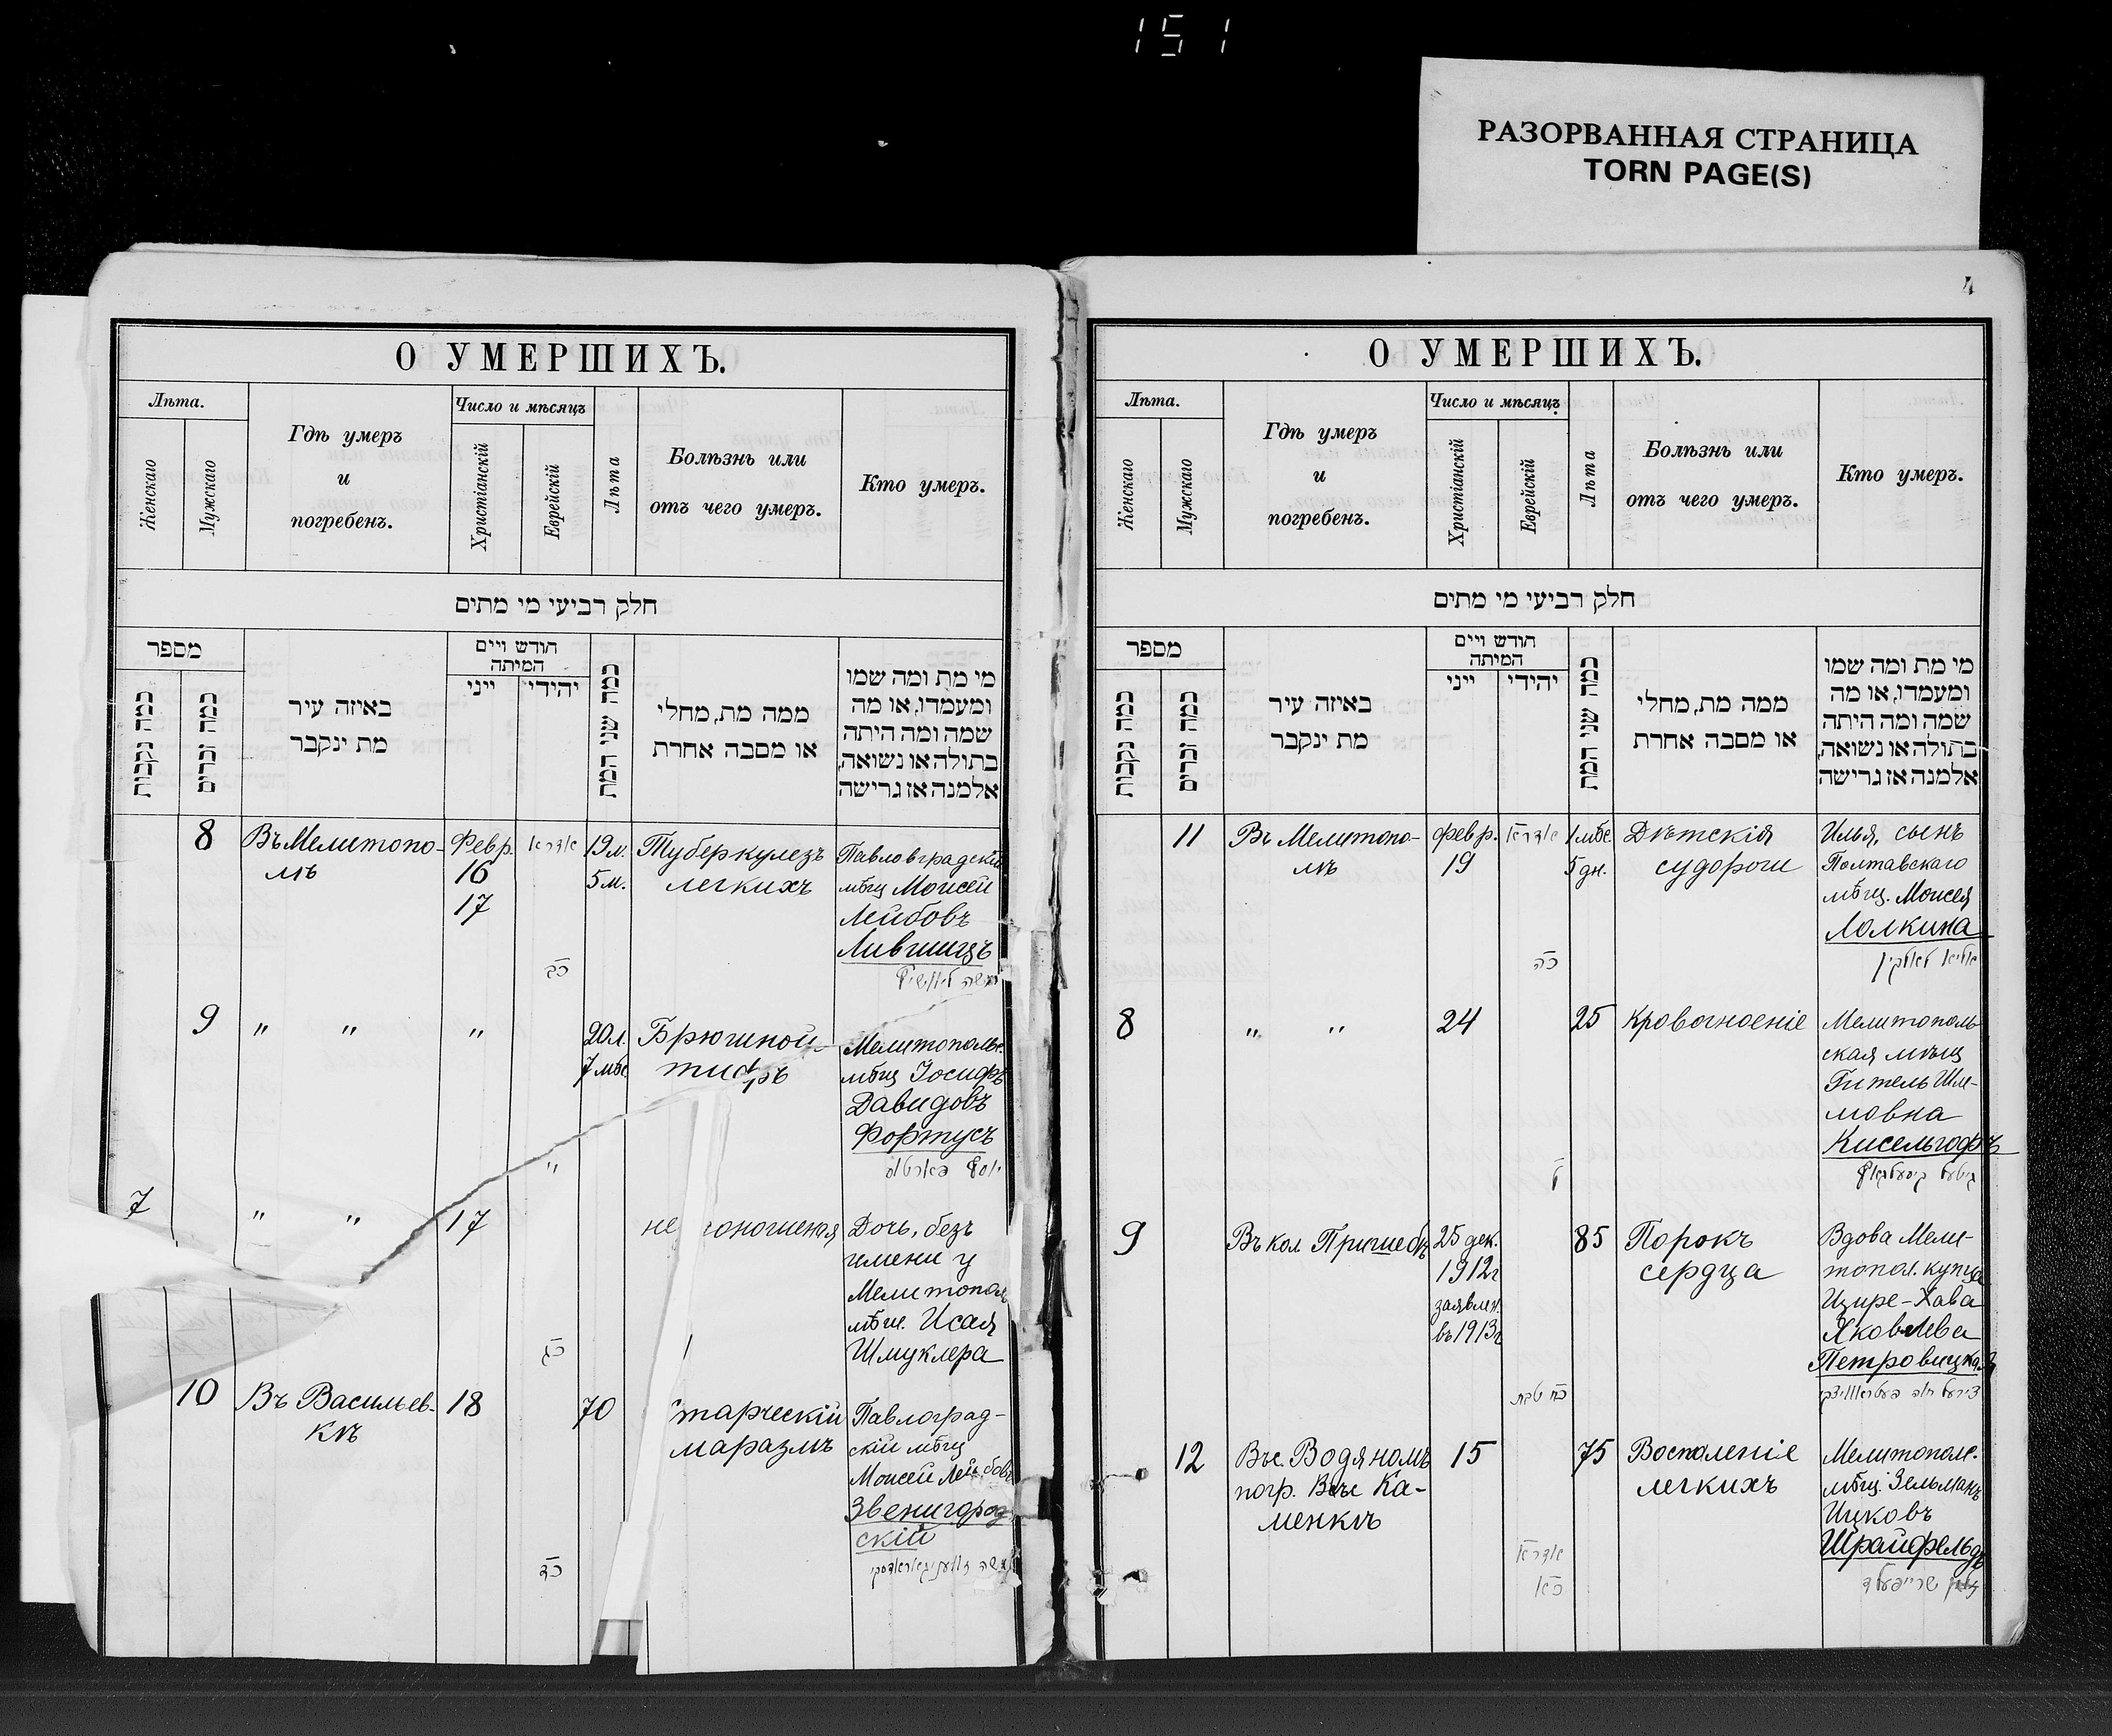 151
РАЗОРВАННАЯ СТРАНИЦА
TORN PAGE(S)
О УМЕРШИХЪ.
Лѣта.
Женскаго
Мужскаго
Гдѣ умеръ
и
погребенъ.
Число и мѣсяцъ
Христіанскій
Еврейскій
Лѣта
Болѣзнь или
отъ чего умеръ.
Кто умеръ.
חלק רביעי מי מתים
מספר
כמה נקבות
כמה זכרים
באיזה עיר
מת ינקבר
חודש ויים
המיתה
ייני
יהידי
כמה שני המת
ממה מת, מחלי
או מסבה אחרת
מי מת ומה שמו
ומעמדו, או מה
שמה ומה היתה
בתולה או נשואה,
אלמנה אז גרישה
8
Въ Мелитопо-
лѣ
Февр.
16
17
אדר א
כב
19 л.
5 м.
Туберкулезъ
легкихъ
Павловградскій
мѣщ Моисей
Лейбовъ
Лившицъ
משה ליוושיץ
9
" "
"
"
20 л.
7 мѣс
Брюшной
тифъ
Мелитопольс.
мѣщ Іосифъ
Давидовъ
Фортусъ
יוסף פארטוס
7
" "
17
כג
недоношеная
Дочь, безъ
имени у
Мелитопол
мѣщ. Исая
Шмуклера
10
Въ Васильев-
кѣ
18
כד
70
Старческій
маразмъ
Павлоград-
скій мѣщ
Моисей Лейбовъ
Звенигород
скій
משה זוועניגאראדסקי
4
О УМЕРШИХЪ.
Лѣта.
Женскаго
Мужскаго
Гдѣ умеръ
и
погребенъ.
Число и мѣсяцъ
Христіанскій
Еврейскій
Лѣта
Болѣзнь или
отъ чего умеръ.
Кто умеръ.
חלק רביעי מי מתים
מספר
כמה נקבות
כמה זכרים
באיזה עיר
מת ינקבר
חודש ויים
המיתה
ייני
יהידי
כמה שני המת
ממה מת, מחלי
או מסבה אחרת
מי מת ומה שמו
ומעמדו, או מה
שמה ומה היתה
בתולה או נשואה,
אלמנה אז גרישה
11
Въ Мелитопо-
лѣ
февр.
19
אדר א
כה
1 мѣс.
5 дн.
Дѣтскія
судороги
Илья, сынъ
Полтавскаго
мѣщ. Моисея
Лолкина
אליא לאלקין
8
" "
24
ל
25
Кровогноеніе
Мелитополь
ская мѣщ
Гитель Шле-
мовна
Кисельгофъ
גיטעל קיסעלגאף
9
Въ кол Пришебѣ
25 дек.
1912 г
заявлен.
въ 1913 г
כח טבת
85
Порокъ
сердца
Вдова Мели-
топол. купца
Цире-Хава
Яковлева
Петровицкая
צירעל חוה פעטראוויצקי
12
Въ с. Водяномъ
погр. Въ с Ка-
менкѣ
15
אדר א
כא
75
Воспаленіе
легкихъ
Мелитополс.
мѣщ. Зельманъ
Ицковъ
Шрайфельдъ
זלמן שרייפעלד